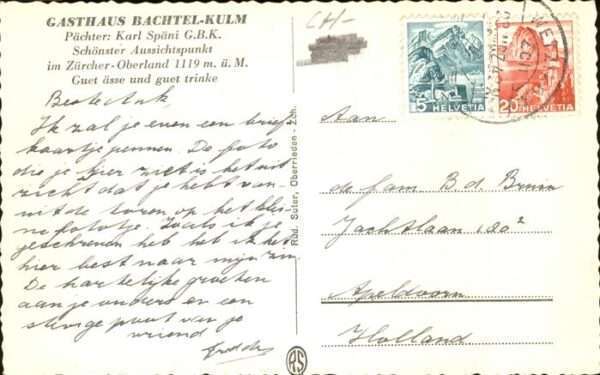 GASTHAUS BACHTEL-KULM
Pächter: Karl Späni G.B.K.
Schönster Aussichtspunkt
im Zürcher-Oberland 1119 m. ü. M.
Guet ässe und guet trinke
CH/-
Beste Ank,
Ik zal je even een brief
kaartje pennen. De foto
die je hier ziet is het uit
zicht dat je hebt van
uit de toren op het klei
ne fototje. Zoals ik je
geschreven heb heb ik het
hier best naar mijn zin
De hartelijke groeten
aan je ouders en een
stevige poot van je
vriend
Rüd. Suter, Oberrieden - Zch.
RS
15 HELVETIA
20 HELVETIA
Aan
de fam B d. Bruin
Jachtlaan 100²
Apeldoorn
Holland